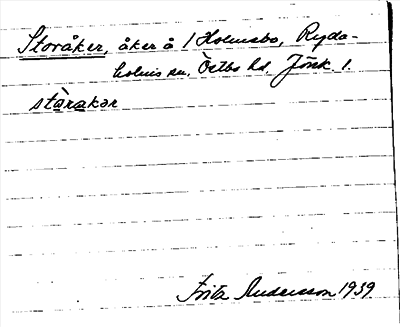 Storåker, åker å 1 Holmsbo, Ryda-
holms sn, Östbo hd, Jönk. l.
stòrakər
Fritz Andersson 1939